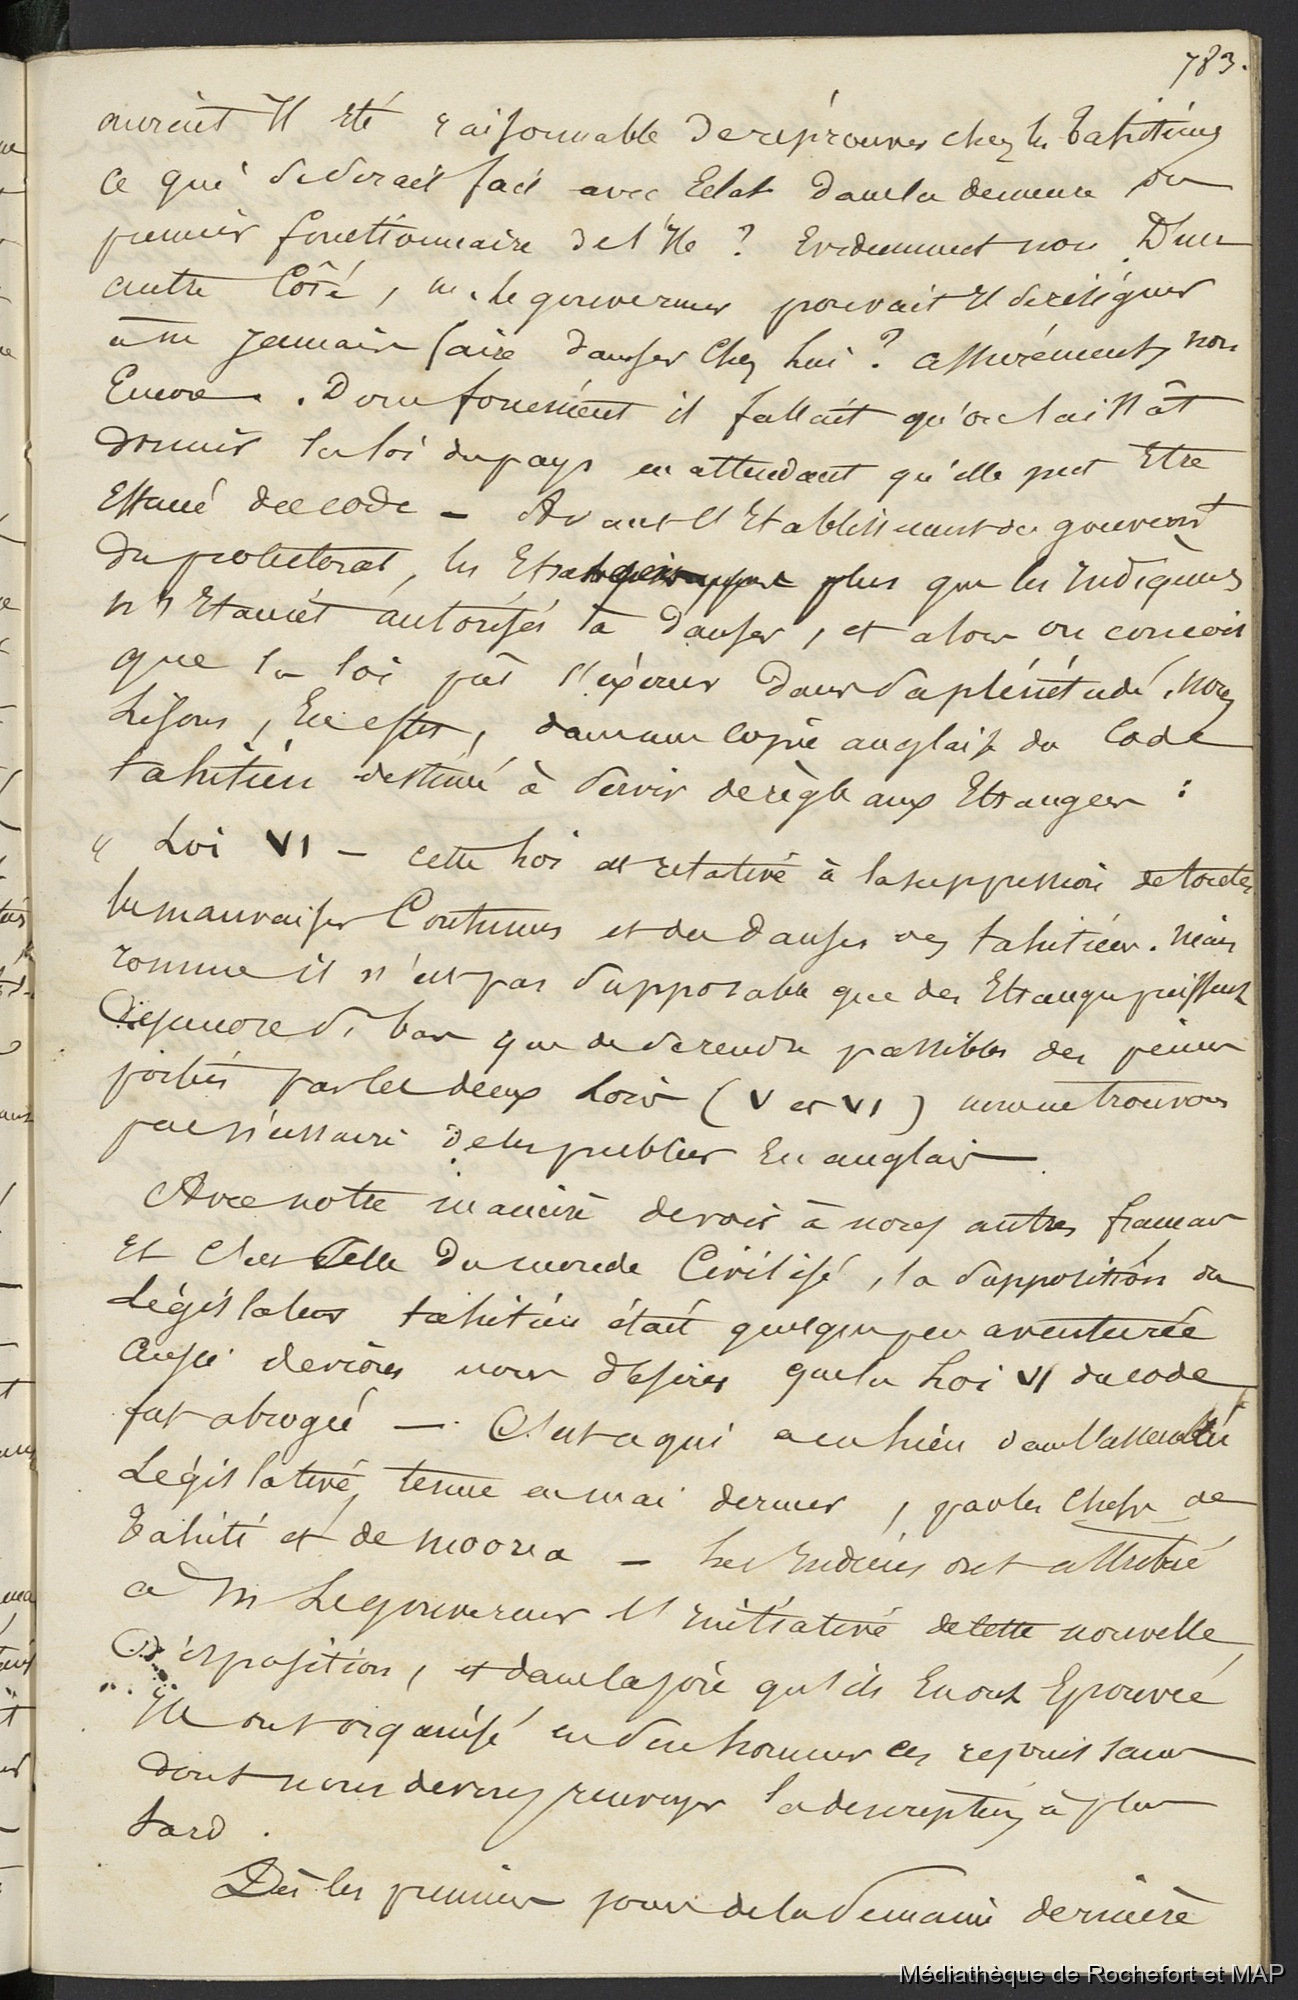 783.
auroit Il Eté raisonnable de reprouver chez les Tahitiens
ce qui se serait fait avec Eclat dans la demeure du
premier fonctionnaire de l'Ile ? Evidemment non. D'un
autre Côté, M. le gouverneur pouvait Il se resigner
à ne jamais faire danser Chez Lui ? assurément, non
Encore. Donc forcément il fallait qu'on laissât
dormir la loi du pays en attendant qu'elle put Etre
Effacé du code – Avant l'Etablissement du gouvernt
du protectorat, les Etrangers plus que les Indigènes
n'Etaient autorisés à danser, et alors on concoit
que la loi pût s'exécuter dans sa plénitude. Nous
Lisons, En effet, dans une copie anglaise du Code
tahitien destiné à servir de règle aux Etrangers :
" Loi VI – cette Loi est relative à la suppression de toutes
les mauvaises Coutumes et des danses des tahitiens. Mais
comme il n'est pas supposable que des Etrangers puissent
descendre si bas que de se rendre passibles des peines
portées par les deux Lois (V et VI) nous ne trouvons
pas nécessaire de les publier En anglais.
Avec notre manière de voir à nous autres francais
Et Celle du monde Civilisé, la supposition du
Législateur tahitien était quelque peu aventurée
aussi devions nous désirer que la Loi VI du code
fut abrogée – C'est ce qui a eu lieu dans l'assemblée
Législative, tenue en mai dernier, par les Chefs de
Tahiti et de Moorea – Les Indiens ont attribué
à M Le gouverneur l'Initiative de cette nouvelle
Disposition, et dans la joie qu'ils En ont Eprouvée
Ils ont organisé en son honneur des rejouissances
dont nous devons renvoyer la description à plus
tard.
Dès les premiers jours de la semaine dernière
Médiathèque de Rochefort et MAP